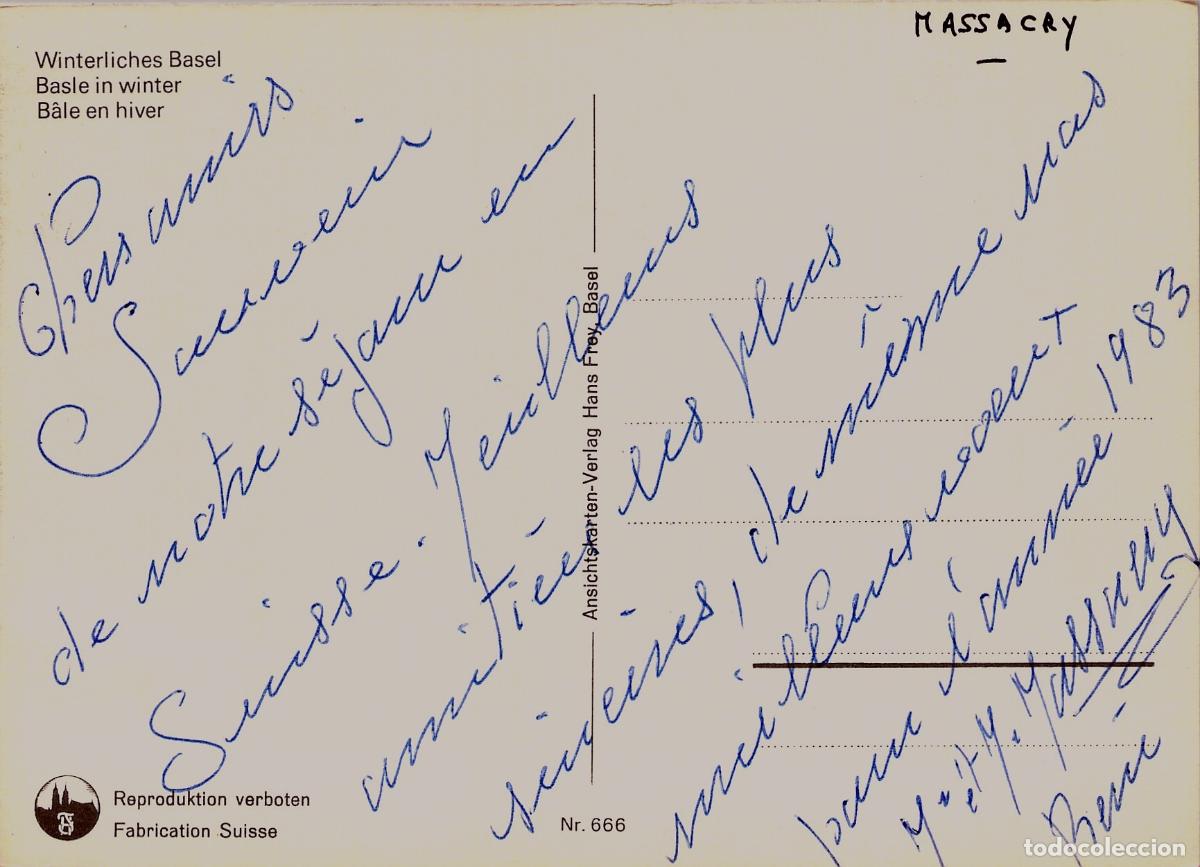 MASSACRY
Winterliches Basel
Basle in winter
Bâle en hiver
Chers amis
Souvenir
de notre séjour en
Suisse. Meilleurs
amitiés les plus
sincères, de même nos
meilleurs voeux
pour l'année 1983
Mme et M. Massacry
René
Ansichtskarten-Verlag Hans Frey, Basel
Reproduktion verboten
Fabrication Suisse
Nr. 666
todocoleccion